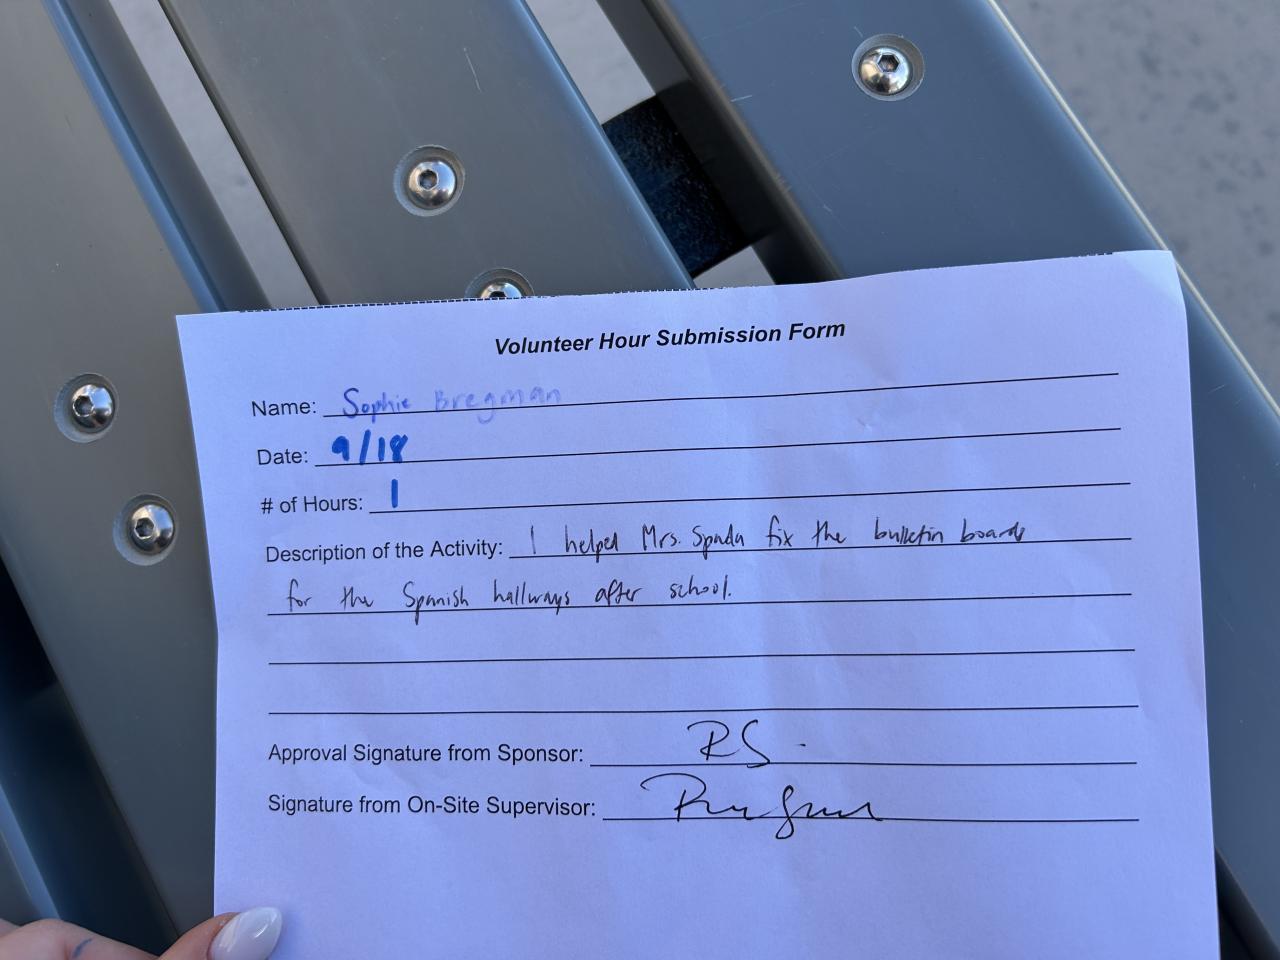 Volunteer Hour Submission Form
Name: Sophie Bregman
Date: 9/18
# of Hours: 1
Description of the Activity: I helped Mrs. Spada fix the bulletin boards
for the Spanish hallways after school.
Approval Signature from Sponsor: RS
Signature from On-Site Supervisor: